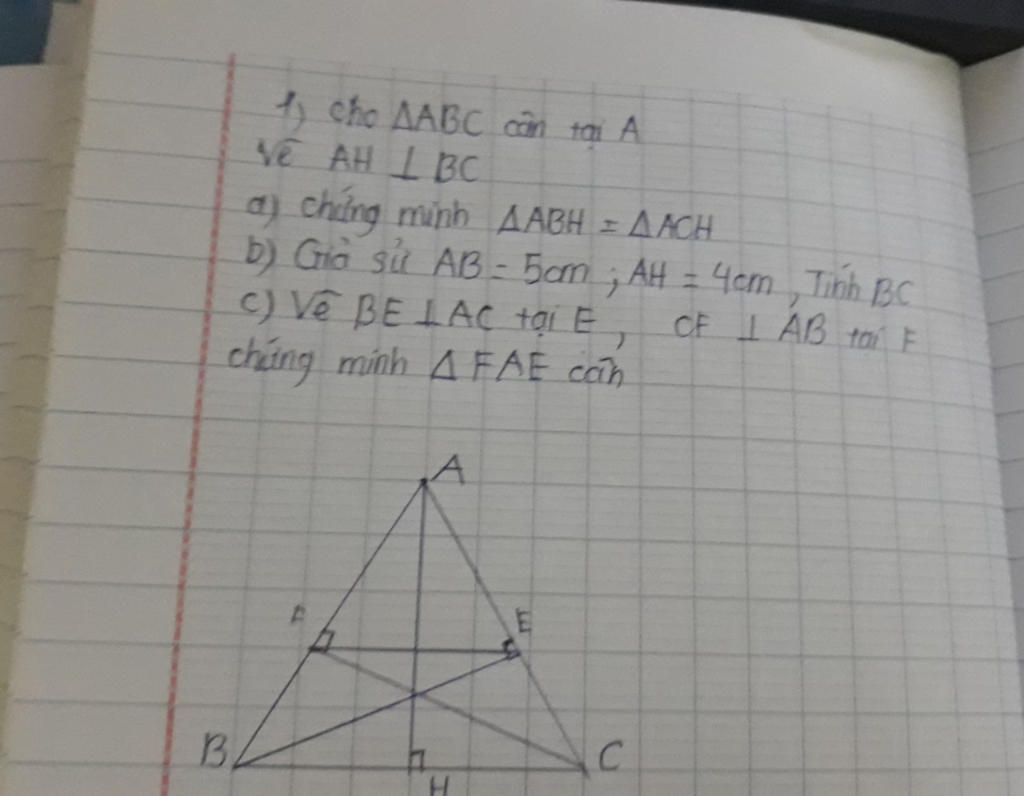 1) cho ΔABC cân tại A
Vẽ AH ⊥ BC
a) chứng minh ΔABH = ΔACH
b) Giả sử AB = 5cm ; AH = 4cm , Tính BC
c) Vẽ BE ⊥ AC tại E , CF ⊥ AB tại F
chứng minh ΔFAE cân
A
F
E
B
C
H